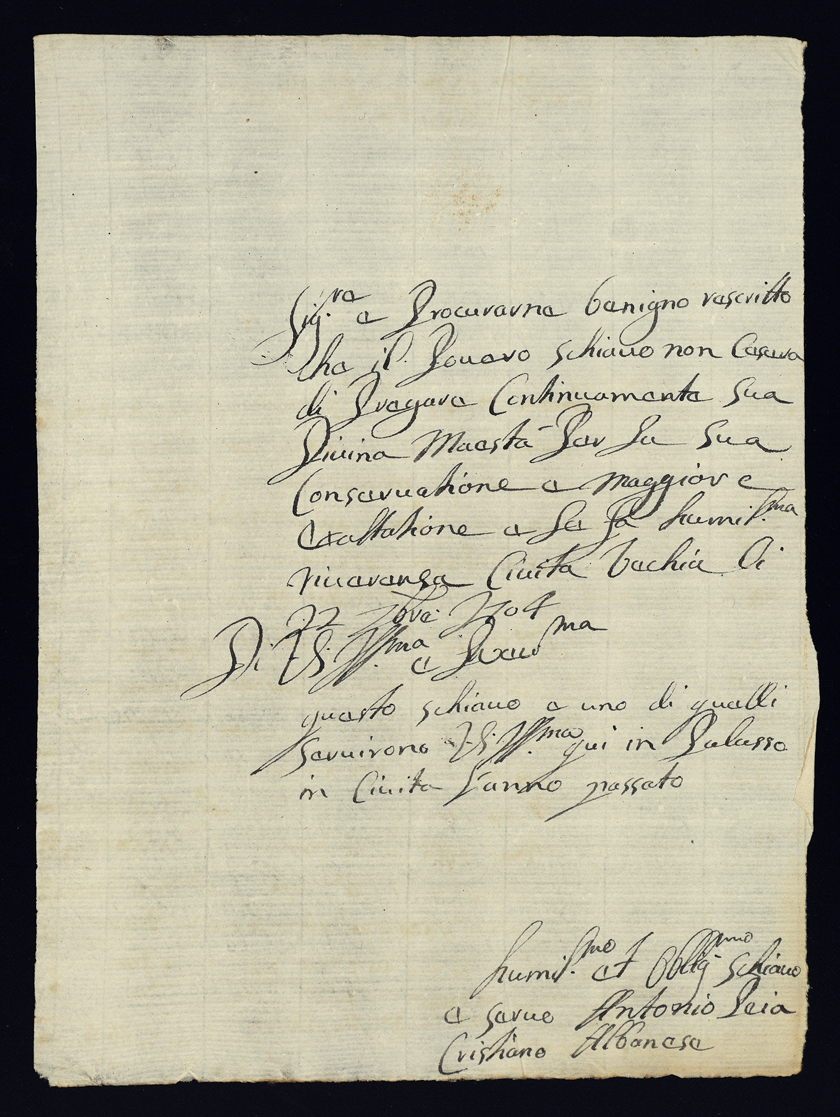 Sig.ra e Procurarne benigno rescritto
che il Povero schiavo non Cesera
di Pregare Continuamente Sua
Divina Maestà Per La Sua
Conservatione e maggior e
Exaltatione e Le Fà humil.ma
riverenza Civita Vechia li
22 9bre 1704
Di V.S. Ill.ma e Rev.ma
questo schiavo e uno di quelli
servirono V.S. Ill.ma qui in Palasso
in Civita l'anno passato
humil.mo et Obblig.mo schiavo
e servo Antonio Leia
Cristiano Albanese